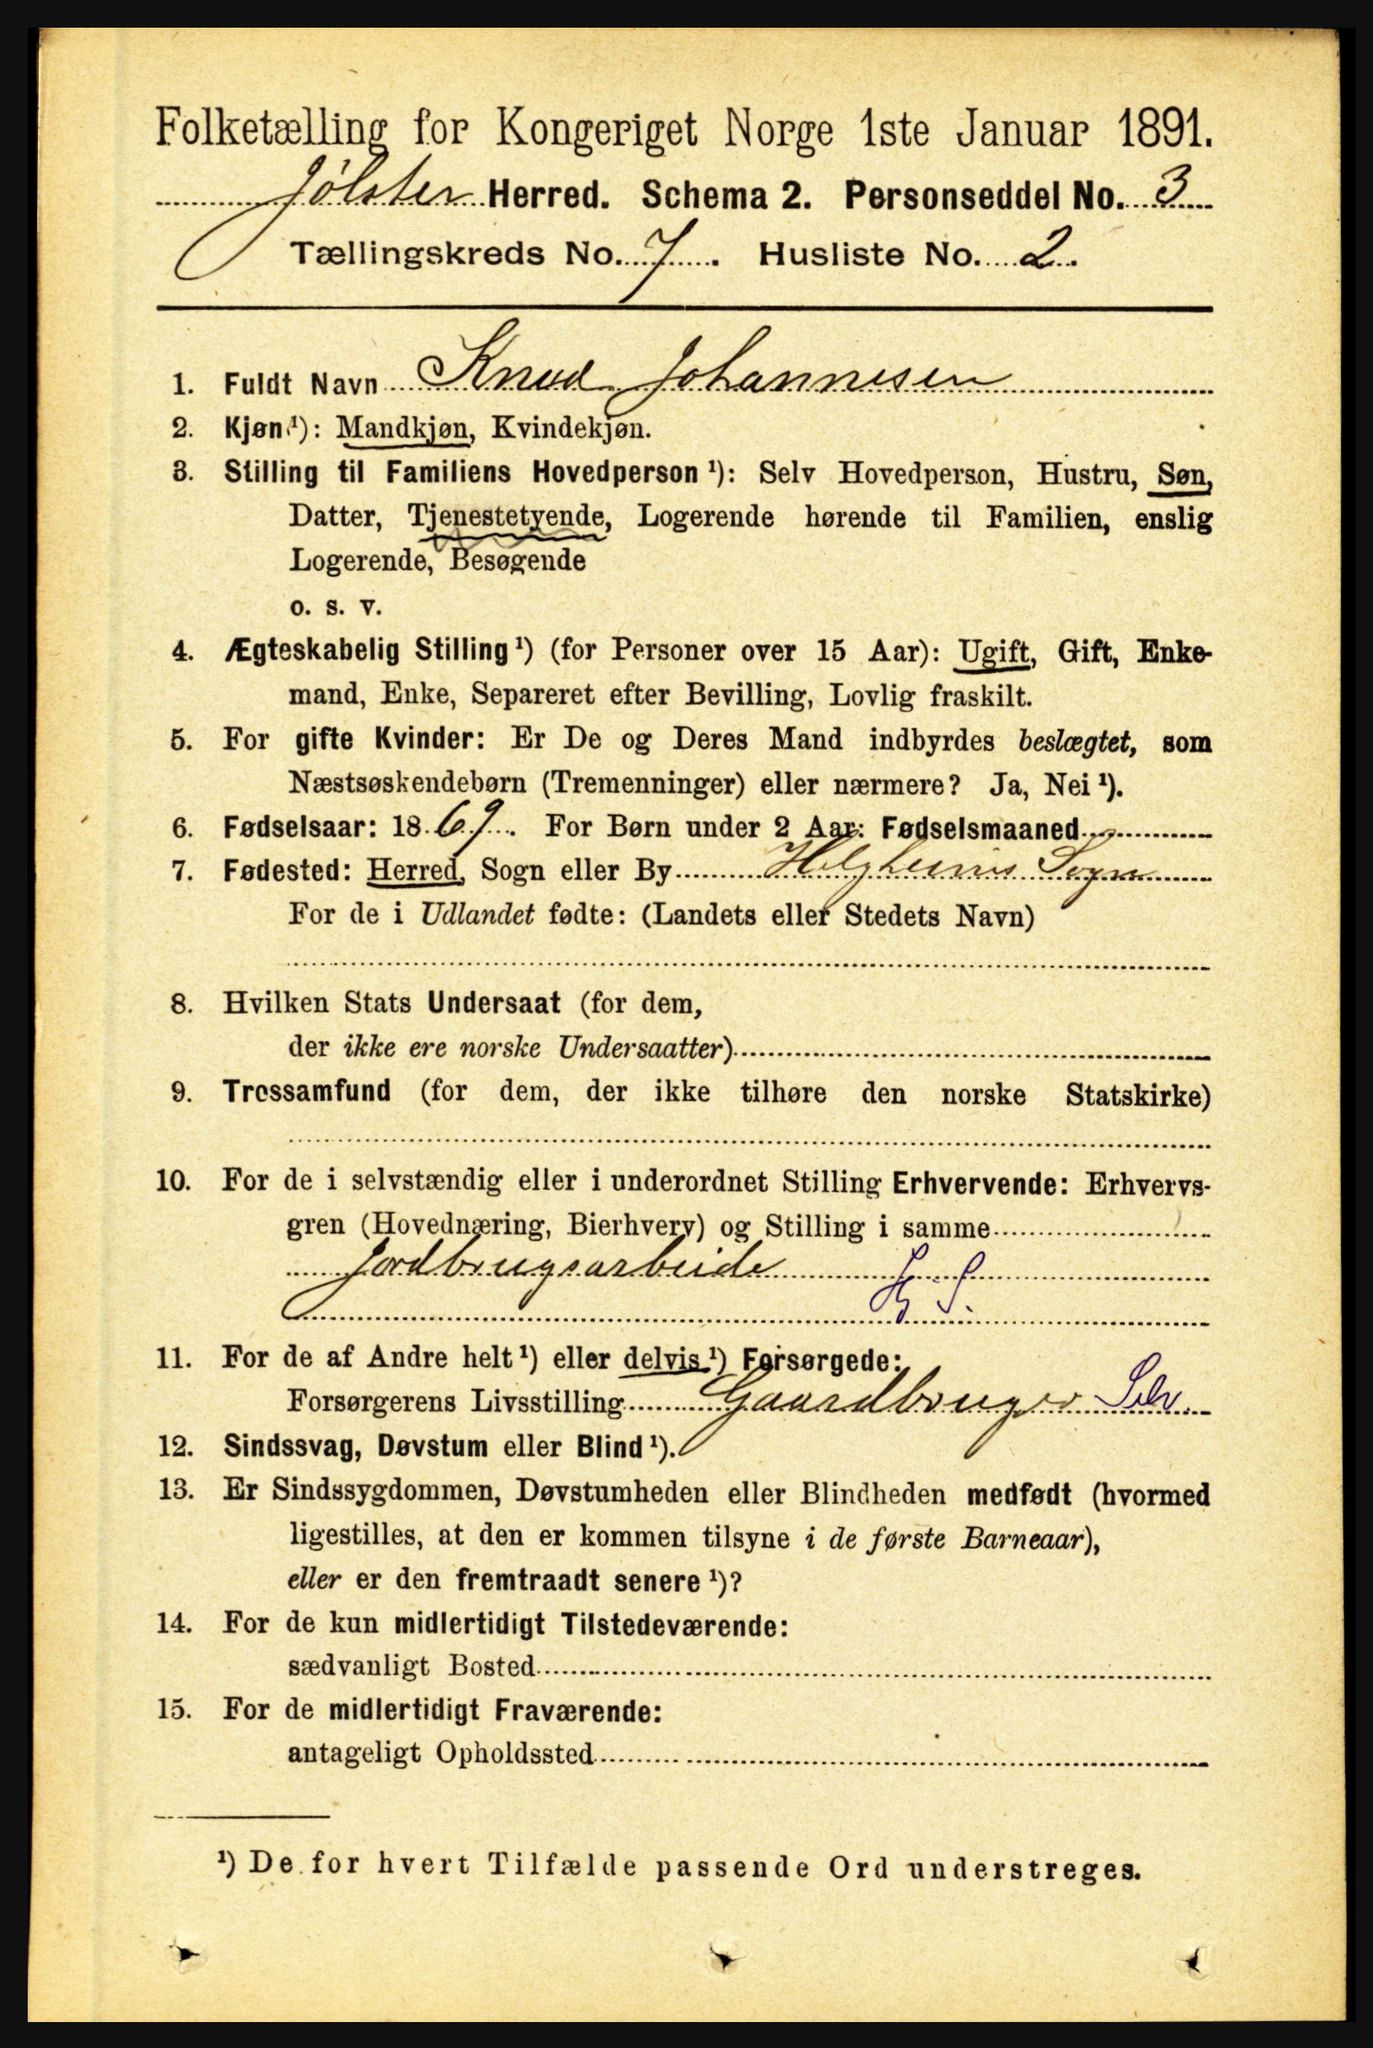 Folketælling for Kongeriget Norge 1ste Januar 1891.
Jølster Herred. Schema 2. Personseddel No. 3
Tællingskreds No. 7. Husliste No. 2.
1. Fuldt Navn Knud Johannesen
2. Kjøn ¹): Mandkjøn, Kvindekjøn.
3. Stilling til Familiens Hovedperson ¹): Selv Hovedperson, Hustru, Søn,
Datter, Tjenestetyende, Logerende hørende til Familien, enslig
Logerende, Besøgende
o. s. v.
4. Ægteskabelig Stilling ¹) (for Personer over 15 Aar): Ugift, Gift, Enke-
mand, Enke, Separeret efter Bevilling, Lovlig fraskilt.
5. For gifte Kvinder: Er De og Deres Mand indbyrdes beslægtet, som
Næstsøskendebørn (Tremenninger) eller nærmere? Ja, Nei ¹).
6. Fødselsaar: 1869. For Børn under 2 Aar: Fødselsmaaned
7. Fødested: Herred, Sogn eller By Helgheims Sogn
For de i Udlandet fødte: (Landets eller Stedets Navn)
8. Hvilken Stats Undersaat (for dem,
der ikke ere norske Undersaatter)
9. Trossamfund (for dem, der ikke tilhøre den norske Statskirke)
10. For de i selvstændig eller i underordnet Stilling Erhvervende: Erhvervs-
gren (Hovednæring, Bierhverv) og Stilling i samme
Jordbrugsarbeide
11. For de af Andre helt ¹) eller delvis ¹) Forsørgede:
Forsørgerens Livsstilling Gaardbruger Selv.
12. Sindssvag, Døvstum eller Blind ¹).
13. Er Sindssygdommen, Døvstumheden eller Blindheden medfødt (hvormed
ligestilles, at den er kommen tilsyne i de første Barneaar),
eller er den fremtraadt senere ¹)?
14. For de kun midlertidigt Tilstedeværende:
sædvanligt Bosted
15. For de midlertidigt Fraværende:
antageligt Opholdssted
¹) De for hvert Tilfælde passende Ord understreges.